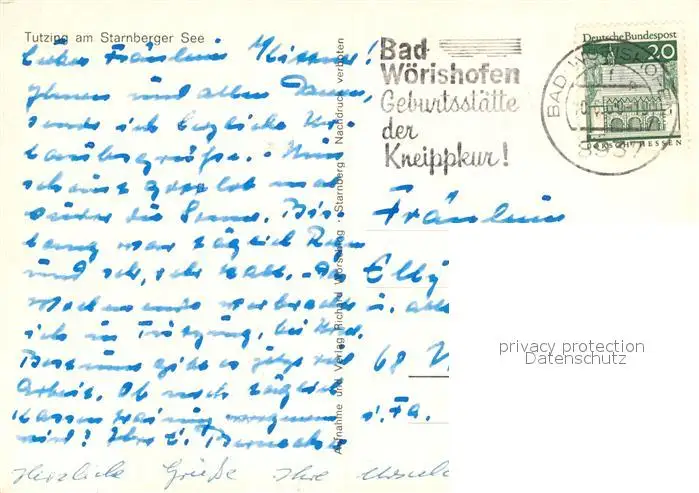 Tutzing am Starnberger See
Liebes Fräulein
Ihnen und allen Damen,
sende ich herzliche Ur-
laubsgrüße. - Nun
scheint Gott lob mal
wieder die Sonne. Bis-
lang war täglich Regen
und sehr, sehr kalt. - Das
Wochenende verbrachte
ich in Tutzing, bei
gibt es jetzt viel
Arbeit. Ob noch täglich
wird? Ihre
Herzliche Grüße Ihre Ursula
Aufnahme und Verlag Richard Wörsching · Starnberg · Nachdruck verboten
Bad
Wörishofen
Geburtsstätte
der
Kneippkur!
Deutsche Bundespost
20
LORSCH/HESSEN
BAD WÖRISHOFEN
Fräulein
Elly
68
i. Fa.
privacy protection
Datenschutz